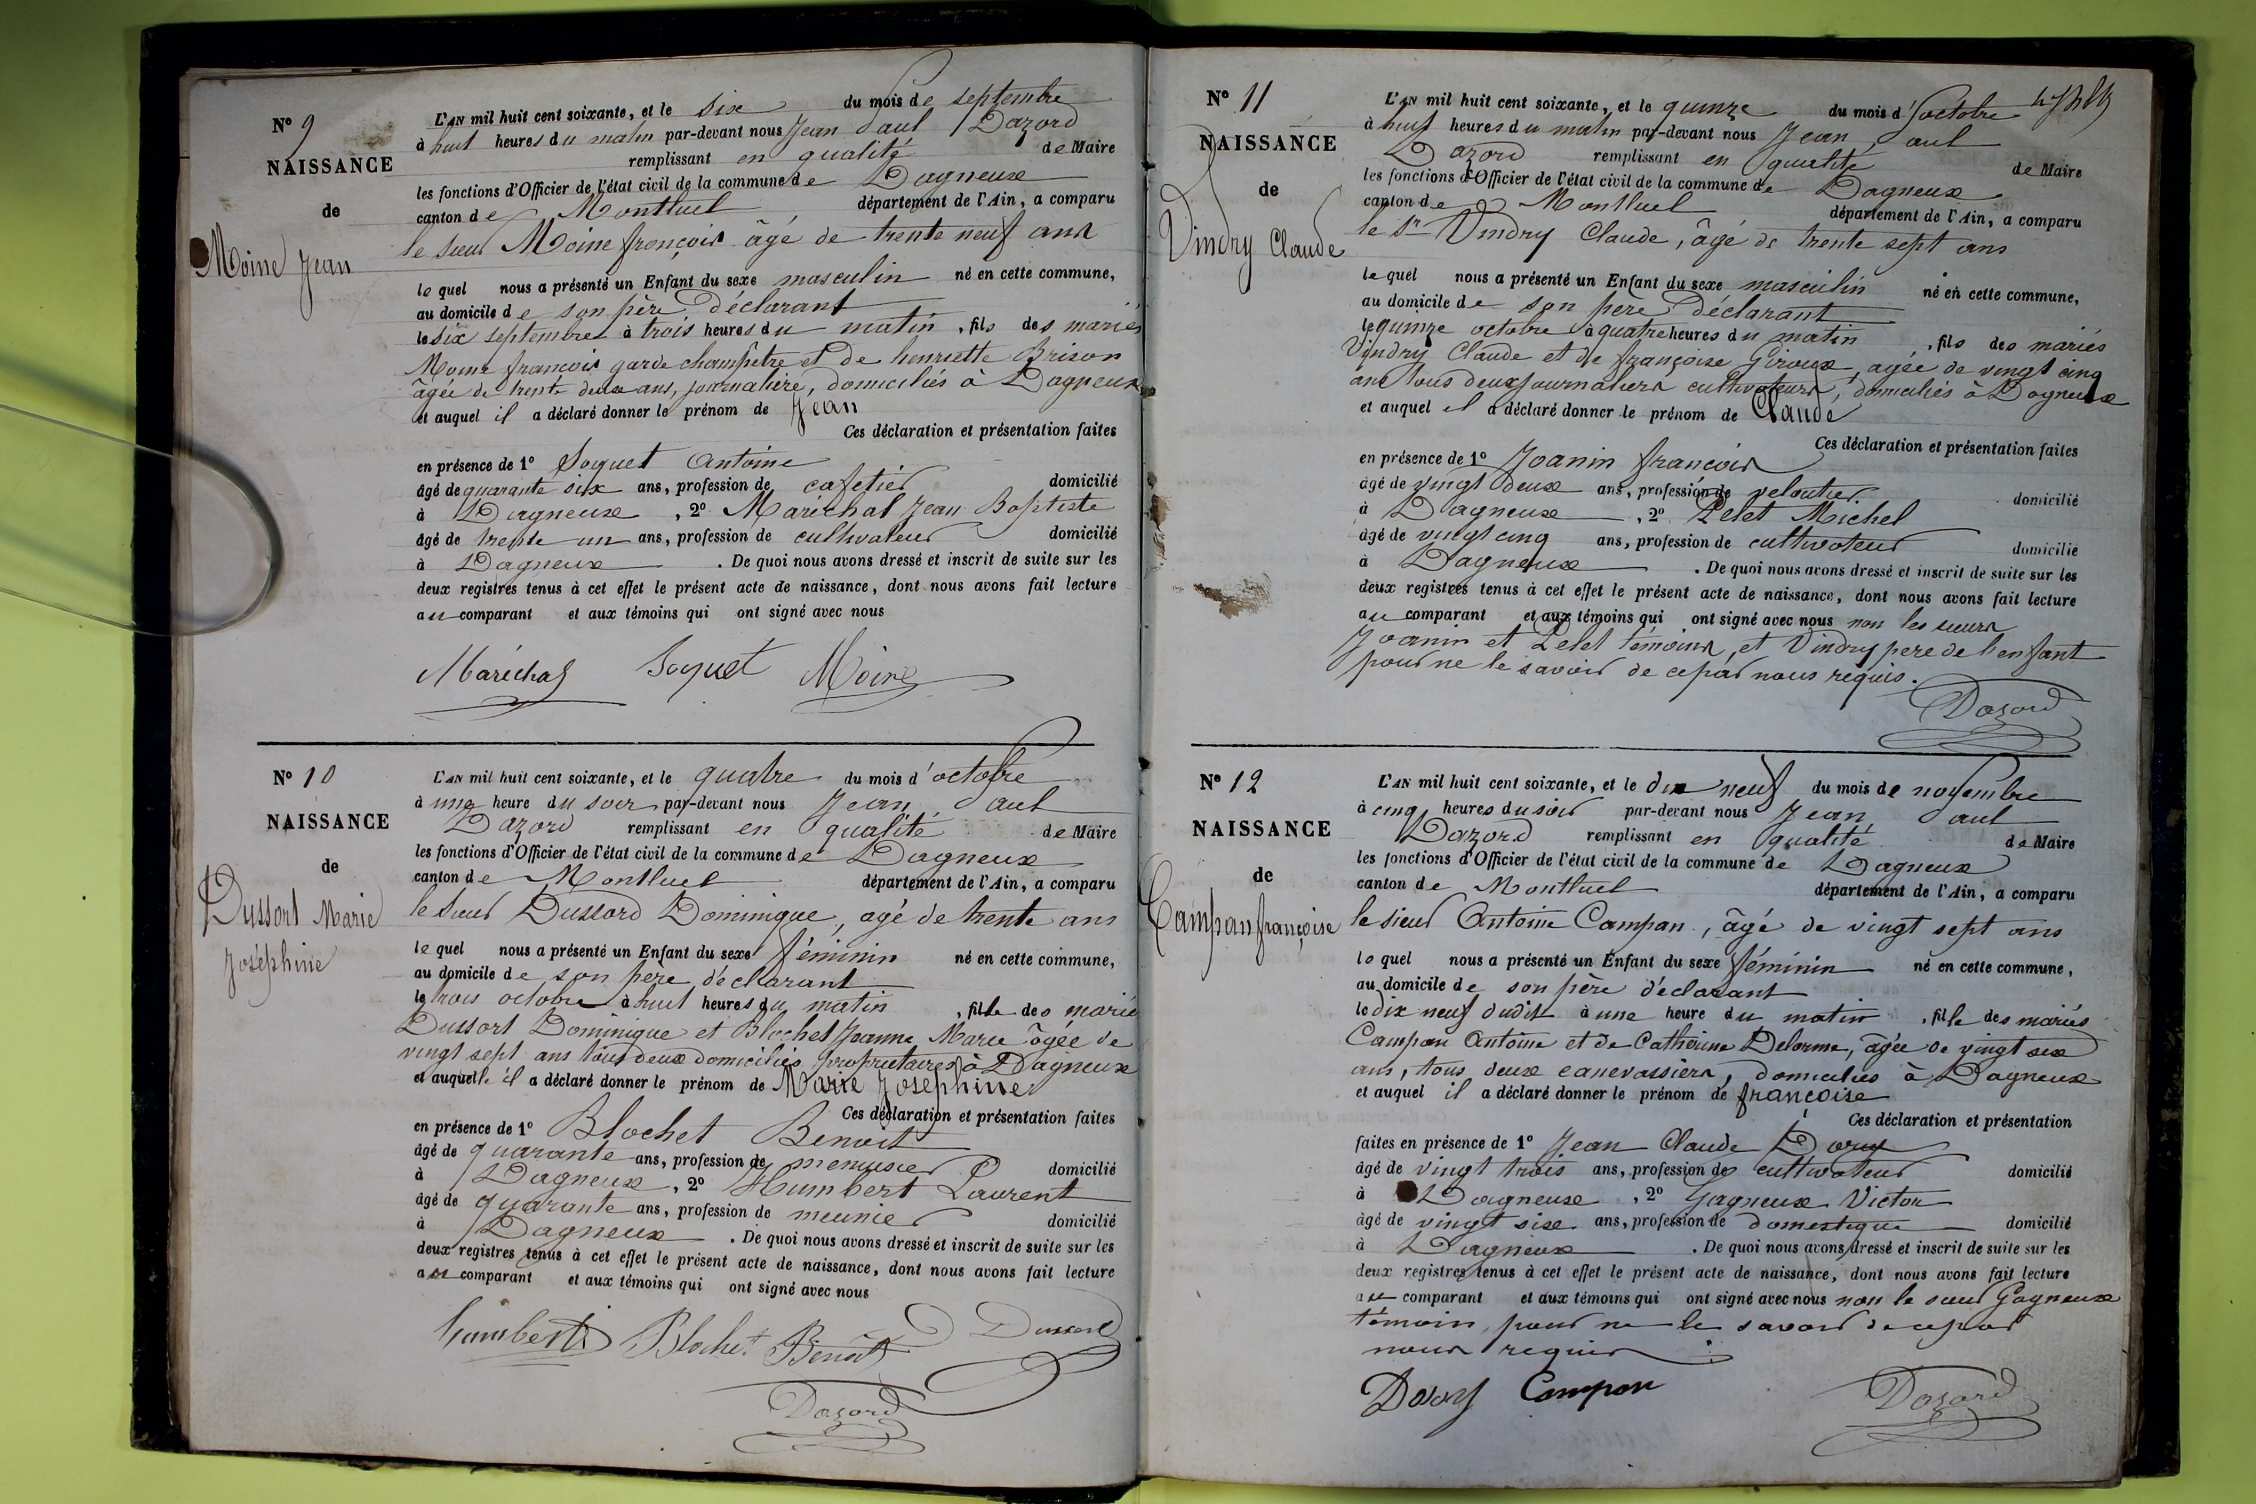 N° 9
NAISSANCE
de
Moine Jean
L'AN mil huit cent soixante, et le six du mois de septembre
à huit heures du matin par-devant nous Jean Paul Dazord
remplissant en qualité de Maire
les fonctions d'Officier de l'état civil de la commune de Dagneux
canton de Montluel département de l'Ain, a comparu
le sieur Moine françois âgé de trente neuf ans
le quel nous a présenté un Enfant du sexe masculin né en cette commune,
au domicile de son père déclarant
le six septembre à trois heures du matin, fils des mariés
Moine françois garde champêtre et de henriette Brison
âgée de trente deux ans, journalière, domiciliés à Dagneux
et auquel il a déclaré donner le prénom de Jean
Ces déclaration et présentation faites
en présence de 1° Soquet Antoine
âgé de quarante six ans, profession de cafetier domicilié
à Dagneux, 2° Maréchal Jean Baptiste
âgé de trente un ans, profession de cultivateur domicilié
à Dagneux. De quoi nous avons dressé et inscrit de suite sur les
deux registres tenus à cet effet le présent acte de naissance, dont nous avons fait lecture
au comparant et aux témoins qui ont signé avec nous
Maréchal Soquet Moine
N° 10
NAISSANCE
de
Dussort Marie
Joséphine
L'AN mil huit cent soixante, et le quatre du mois d'octobre
à une heure du soir par-devant nous Jean Paul
Dazord remplissant en qualité de Maire
les fonctions d'Officier de l'état civil de la commune de Dagneux
canton de Montluel département de l'Ain, a comparu
le sieur Dussord Dominique, agé de trente ans
le quel nous a présenté un Enfant du sexe féminin né en cette commune,
au domicile de son père déclarant
le trois octobre à huit heures du matin, fille des mariés
Dussort Dominique et Blochet Jeanne Marie âgée de
vingt sept ans tous deux domiciliés propriétaires à Dagneux
et auquelle il a déclaré donner le prénom de Marie Joséphine
Ces déclaration et présentation faites
en présence de 1° Blochet Benoit
âgé de quarante ans, profession de menuisier domicilié
à Dagneux, 2° Humbert Laurent
âgé de quarante ans, profession de meunier domicilié
à Dagneux. De quoi nous avons dressé et inscrit de suite sur les
deux registres tenus à cet effet le présent acte de naissance, dont nous avons fait lecture
au comparant et aux témoins qui ont signé avec nous
humbert Blochet Benoît Dussord
Dazord
N° 11
NAISSANCE
de
Vindry Claude
L'AN mil huit cent soixante, et le quinze du mois d'octobre
à huit heures du matin par-devant nous Jean Paul
Dazord remplissant en qualité de Maire
les fonctions d'Officier de l'état civil de la commune de Dagneux
canton de Montluel département de l'Ain, a comparu
le Sr Vindry Claude, âgé de trente sept ans
le quel nous a présenté un Enfant du sexe masculin né en cette commune,
au domicile de son père déclarant
le quinze octobre à quatre heures du matin, fils des mariés
Vindry Claude et de françoise Giroux, agée de vingt cinq
ans tous deux journaliers cultivateurs, domiciliés à Dagneux
et auquel il a déclaré donner le prénom de Claude
Ces déclaration et présentation faites
en présence de 1° Joanin françois
âgé de vingt deux ans, profession de veloutier domicilié
à Dagneux, 2° Pelet Michel
âgé de vingt cinq ans, profession de cultivateur domicilié
à Dagneux. De quoi nous avons dressé et inscrit de suite sur les
deux registres tenus à cet effet le présent acte de naissance, dont nous avons fait lecture
au comparant et aux témoins qui ont signé avec nous non les sieurs
Joanin et Pelet témoins, et Vindry pere de l'enfant
pour ne le savoir de ce par nous requis.
Dazord
N° 12
NAISSANCE
de
Campan françoise
L'AN mil huit cent soixante, et le dix neuf du mois de novembre
à cinq heures du soir par-devant nous Jean Paul
Dazord remplissant en qualité de Maire
les fonctions d'Officier de l'état civil de la commune de Dagneux
canton de Montluel département de l'Ain, a comparu
le sieur Antoine Campan, âgé de vingt sept ans
le quel nous a présenté un Enfant du sexe féminin né en cette commune,
au domicile de son père déclarant
le dix neuf dudit à une heure du matin, fille des mariés
Campan Antoine et de Catherine Delorme, âgée de vingt six
ans, tous deux canevassiers, domiciliés à Dagneux
et auquel il a déclaré donner le prénom de françoise
Ces déclaration et présentation
faites en présence de 1° Jean Claude
âgé de vingt trois ans, profession de cultivateur domicilié
à Dagneux, 2° Gagneux Victor
âgé de vingt six ans, profession de domestique domicilié
à Dagneux. De quoi nous avons dressé et inscrit de suite sur les
deux registres tenus à cet effet le présent acte de naissance, dont nous avons fait lecture
au comparant et aux témoins qui ont signé avec nous non le sieur Gagneux
témoin, pour ne le savoir de ce par
nous requis
Campan Dazord